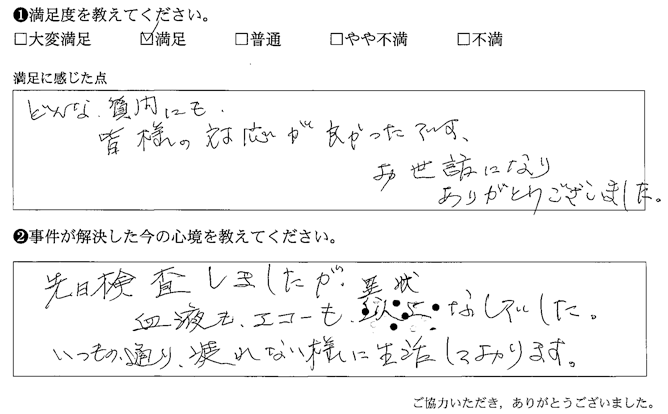 ❶満足度を教えてください。
□大変満足 ☑満足 □普通 □やや不満 □不満
満足に感じた点
どんな、質問にも、
皆様の対応が良かったです、
お世話になり
ありがとうございました。
❷事件が解決した今の心境を教えてください。
先日検査しましたが、異状
血液も、エコーも、なしでした。
いつもの、通り、疲れない様に生活しております。
ご協力いただき，ありがとうございました。